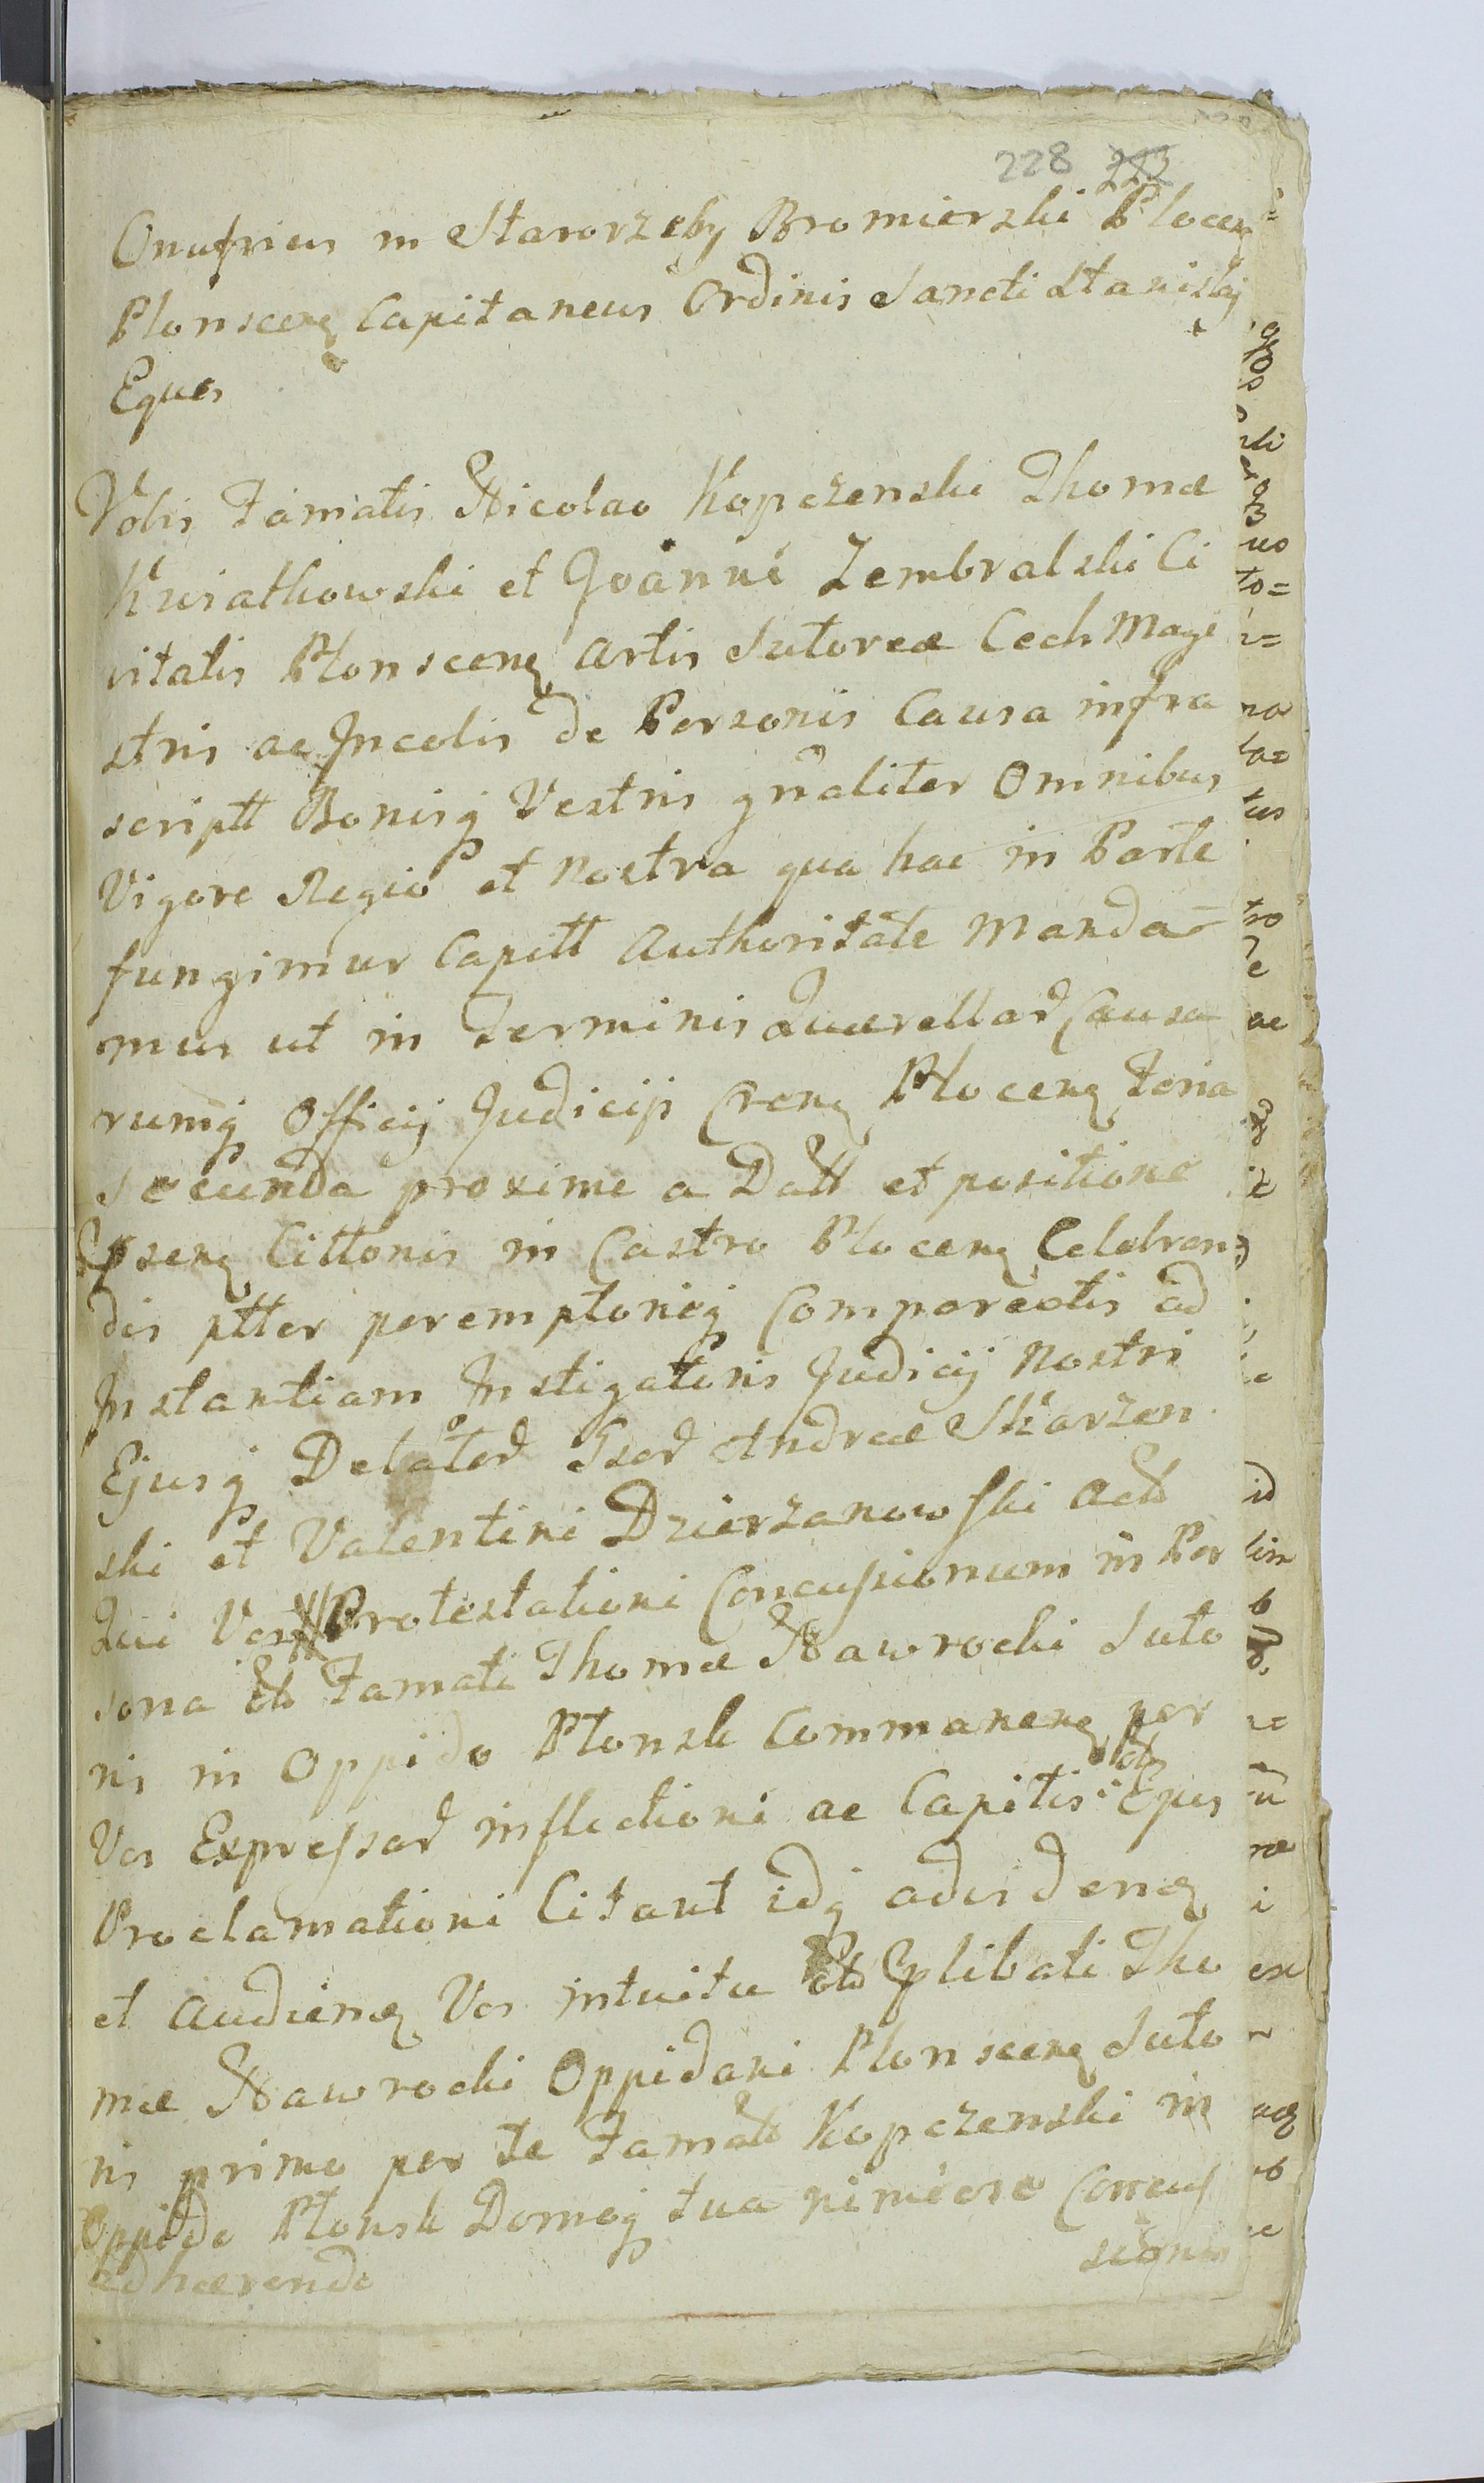 228 223
Onufrius in Starorzeby Bromierski Plocen
Plonscenq Capitaneus Ordinis Sancti Stanislaj
Eques
Vobis Famatis Nicolao Kopczenski Thomæ
Kwiatkowski et Joanni Zembralski Ci
vitatis Plonscenq Artis Sutoreæ Cech Magi
stris ac Incolis de Personis Causa infra
scriptt Bonisq Vestris gnaliter Omnibus
Vigore Regio et Nostra qua hac in Parte
fungimur Capitt Authoritate Manda-
mus ut in Terminis Quærellar Causa
rumq Officij Judicijs Crenq Plocenq Feria
secunda proxime a Datt et positione
psenq Cittonis in Castro Plocenq Celebran=
dis ptter peremptorieq Compareatis ad
Instantiam Instigatoris Judicij Nostri
Ejusq Delator Gsor Andreæ Skarzen
ski et Valentini Dzierzanowski
Qui Vos Protestationi Concussionum in Per
sona Famati Thomæ Nawrocki Suto
ris in Oppido Plonsk Commanenq per
Vos Expressar inflictioni ac Capitis Ejus
Proclamationi Citant idq
et Audienq Vos intuitu plibati Tho
mæ Nawrocki Oppidani Plonscenq Suto
ris primo per te Kopczenski in
Oppido Plonsk Domoq tua Concus
adhærendo sionis